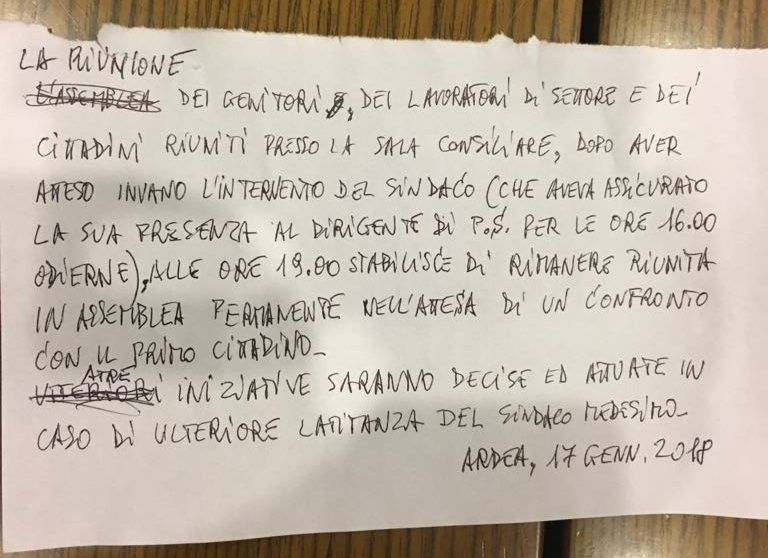 LA RIUNIONE
L'ASSEMBLEA DEI GENITORI, DEI LAVORATORI DI SETTORE E DEI
CITTADINI RIUNITI PRESSO LA SALA CONSILIARE, DOPO AVER
ATTESO INVANO L'INTERVENTO DEL SINDACO (CHE AVEVA ASSICURATO
LA SUA PRESENZA AL DIRIGENTE DI P.S. PER LE ORE 16.00
ODIERNE), ALLE ORE 19.00 STABILISCE DI RIMANERE RIUNITA
IN ASSEMBLEA PERMANENTE NELL'ATTESA DI UN CONFRONTO
CON IL PRIMO CITTADINO_
ATRE
ULTERIORI INIZIATIVE SARANNO DECISE ED ATTUATE IN
CASO DI ULTERIORE LATITANZA DEL SINDACO MEDESIMO_
ARDEA, 17 GENN. 2018